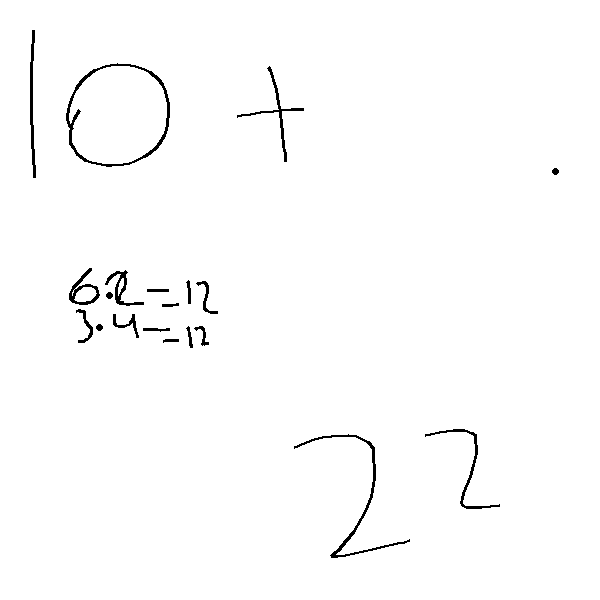 10 + .
6·2=12
3·4=12
22